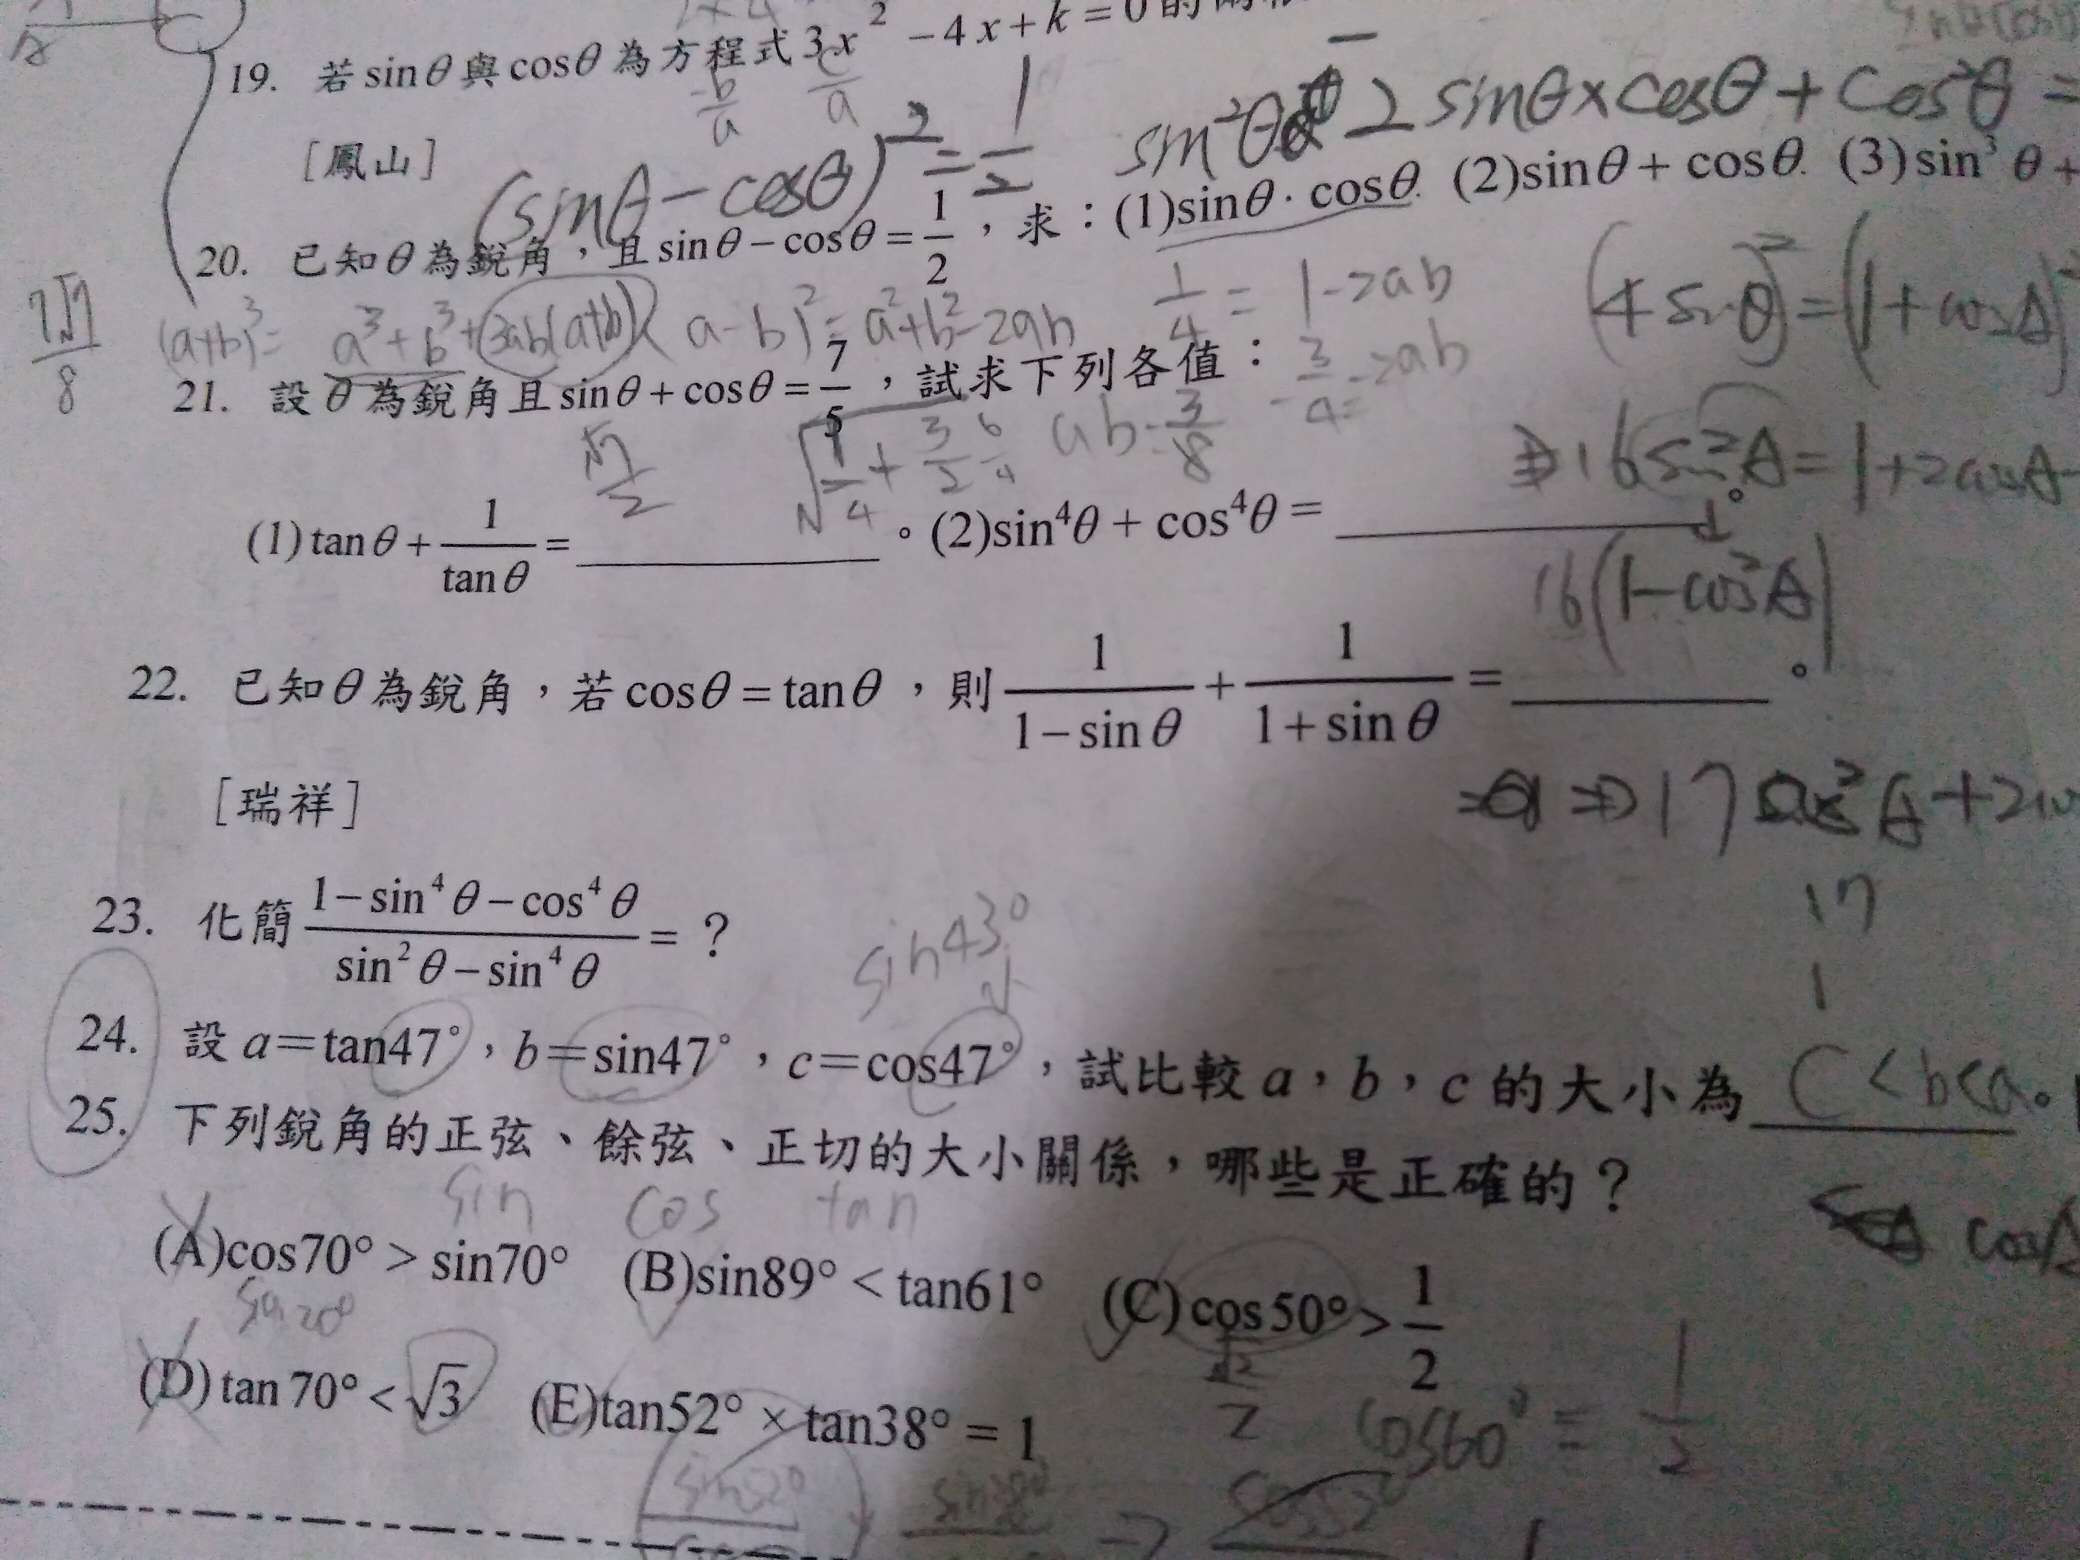 19. 若sinθ與cosθ為方程式3x² −4x+k=0的兩根
−b/a c/a
[鳳山]
(sinθ−cosθ)² = 1/2 sin²θ − 2sinθ×cosθ+cos²θ =
20. 已知θ為銳角，且sinθ−cosθ=1/2，求：(1)sinθ·cosθ. (2)sinθ+cosθ. (3)sin³θ+
7√7/8 (a+b)³= a³+b³+3ab(a+b) (a−b)²=a²+b²−2ab 1/4 = 1−2ab (4sinθ)²=(1+cosA)²
21. 設θ為銳角且sinθ+cosθ=7/5，試求下列各值：
−3/4=−2ab
√7/2 √1/4+3/2 6/4 ab=3/8 ⇒16sin²A=1+2cosA
(1)tanθ+1/tanθ=________。(2)sin⁴θ+cos⁴θ=________。
16(1−cos²A)
22. 已知θ為銳角，若cosθ=tanθ，則1/(1−sinθ)+1/(1+sinθ)=________。
[瑞祥]
⇒17cos²A+2co
23. 化簡(1−sin⁴θ−cos⁴θ)/(sin²θ−sin⁴θ)=？
17
1
sin43°
24. 設a=tan47°，b=sin47°，c=cos47°，試比較a，b，c的大小為 c<b<a。
25. 下列銳角的正弦、餘弦、正切的大小關係，哪些是正確的？
sin cos tan
cosA
(A)cos70°>sin70° (B)sin89°<tan61° (C)cos50°>1/2
sin20°
(D)tan70°<√3 (E)tan52°×tan38°=1
√2/2 cos60°=1/2
sin52° sin38°